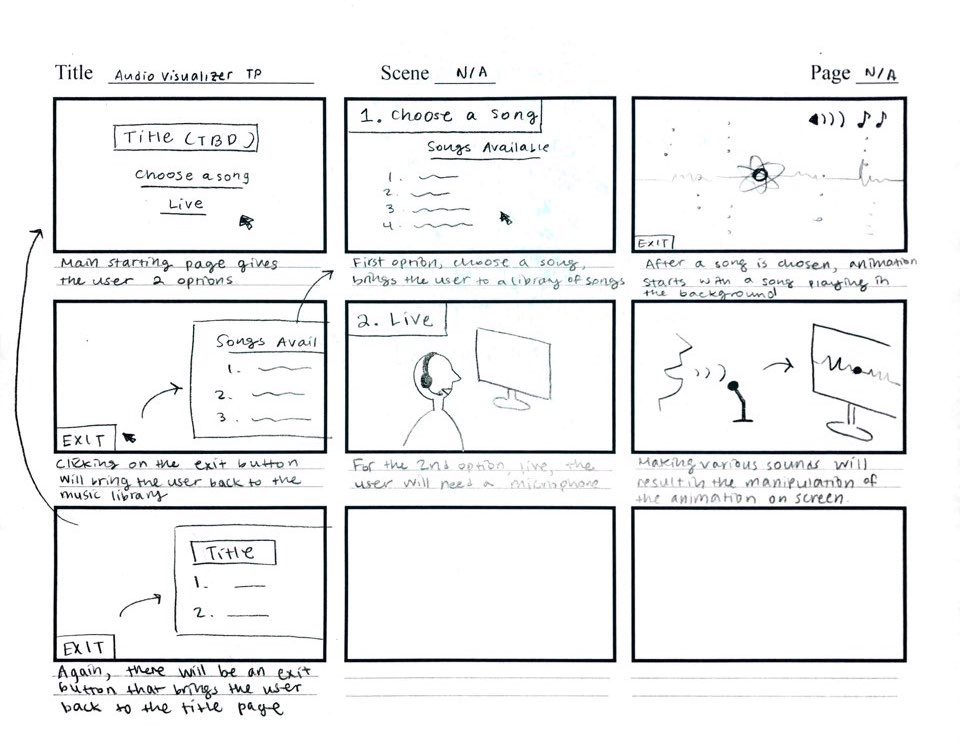 Title Audio Visualizer TP
Scene N/A
Page N/A
Title (TBD)
Choose a song
Live
Main starting page gives
the user 2 options
1. Choose a song
Songs Available
1.
2.
3.
4.
First option, choose a song,
brings the user to a library of songs
EXIT
After a song is chosen, animation
starts with a song playing in
the background
Songs Avail
1.
2.
3.
EXIT
Clicking on the exit button
will bring the user back to the
music library
2. Live
For the 2nd option, live, the
user will need a microphone
Making various sounds will
result in the manipulation of
the animation on screen.
Title
1.
2.
EXIT
Again, there will be an exit
button that brings the user
back to the title page